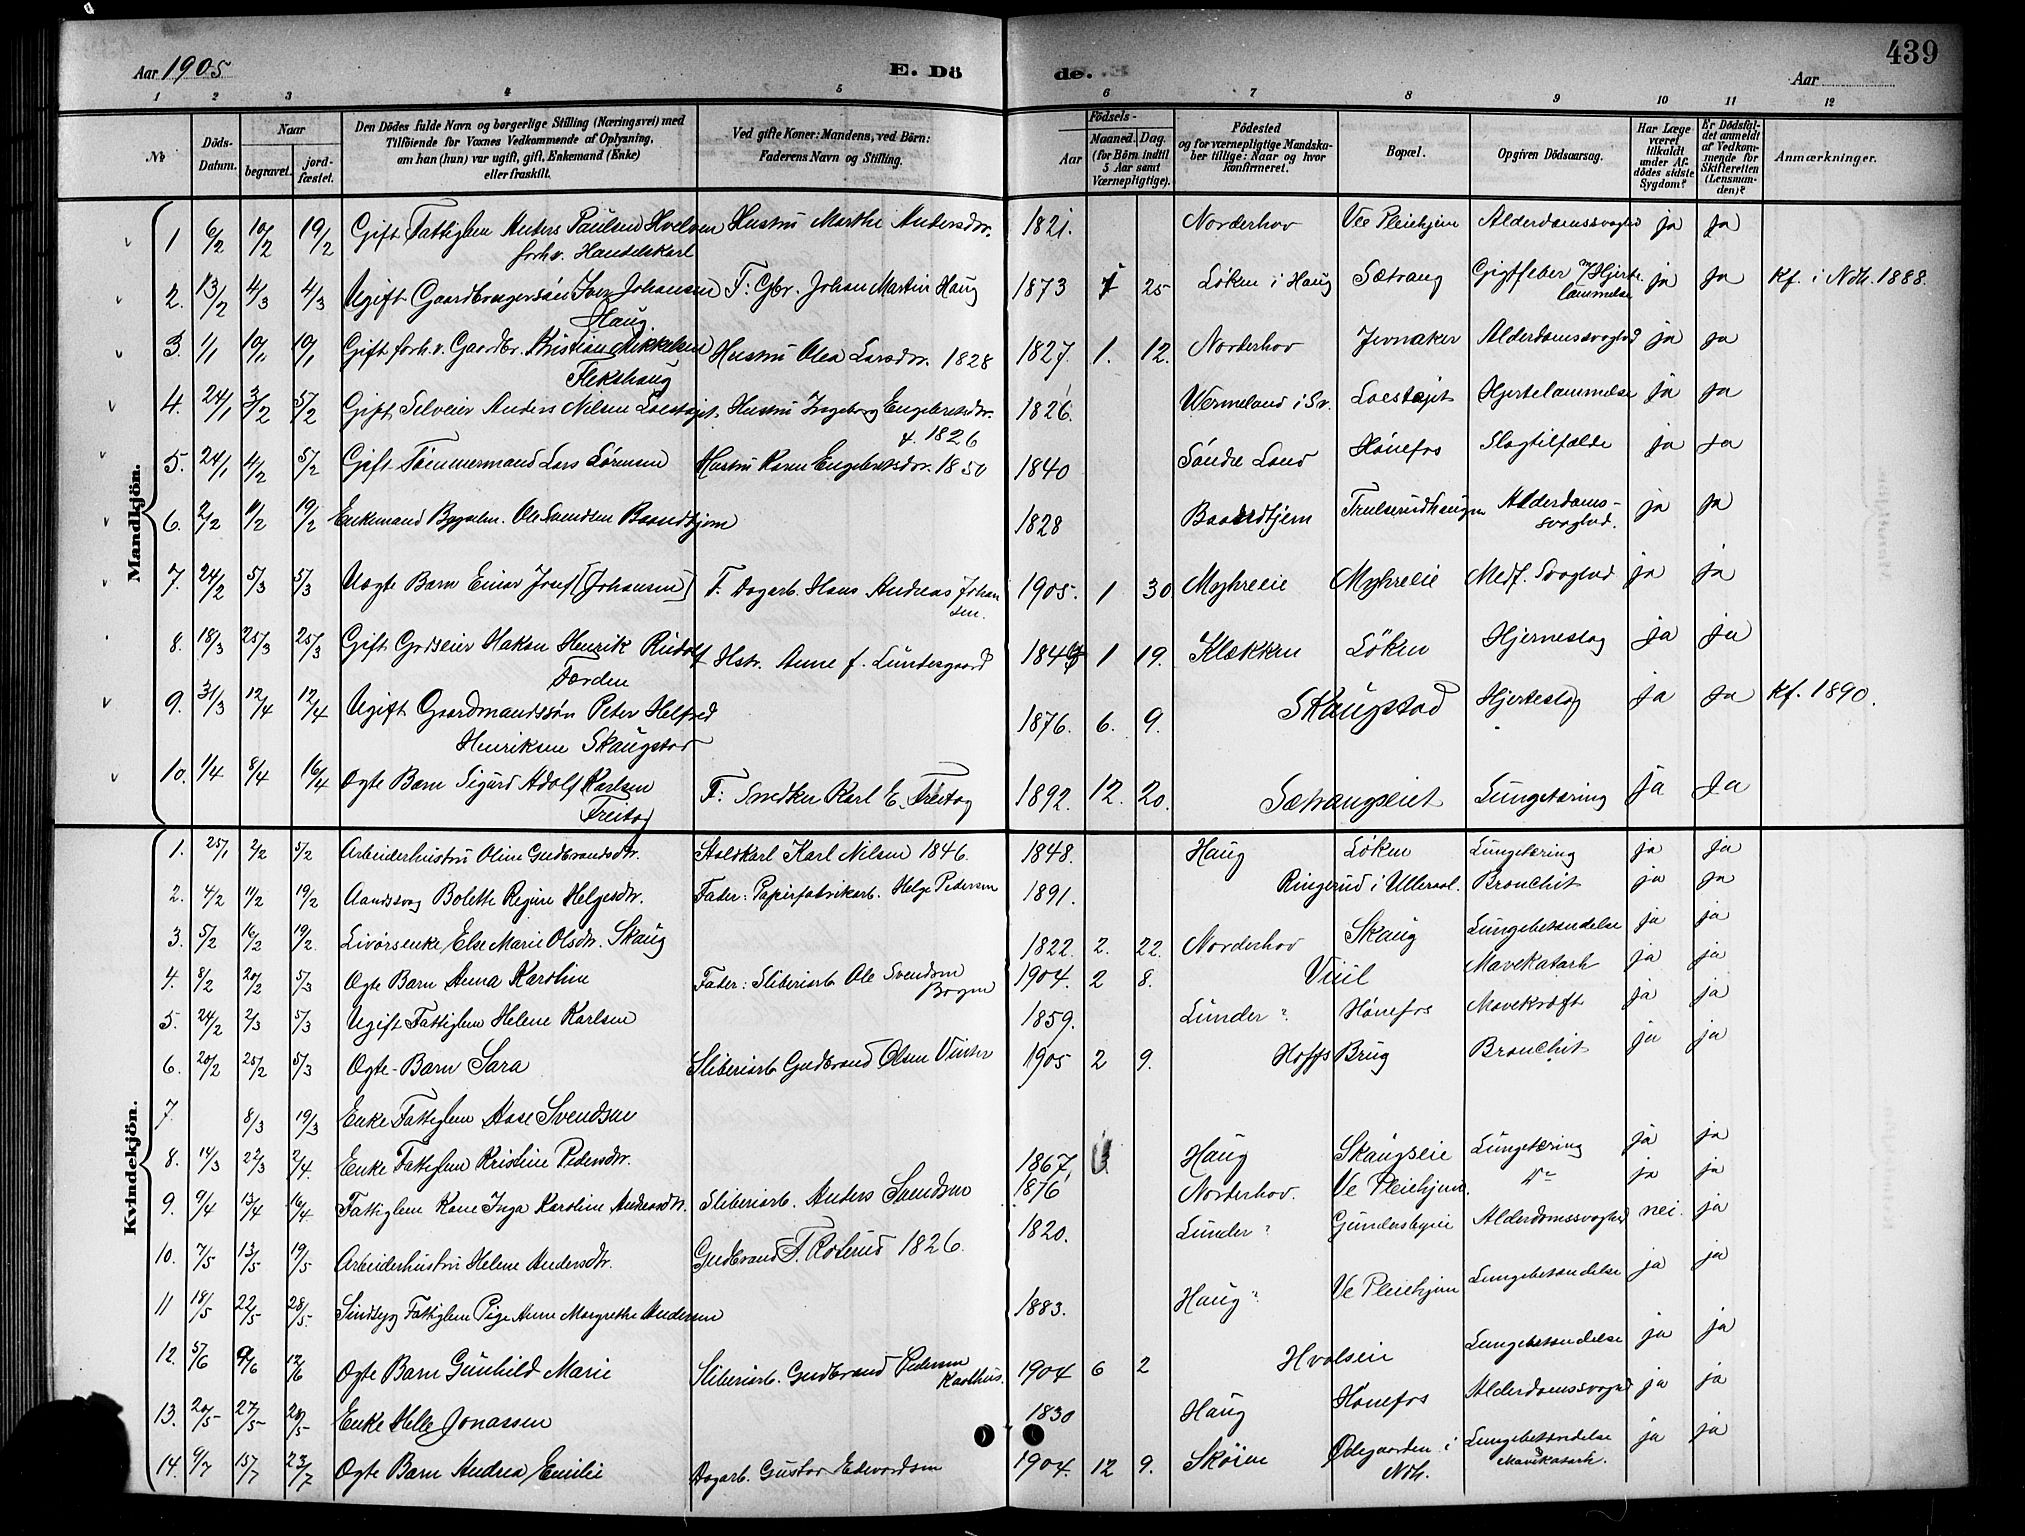 439
Aar 1905
E. Dö
de.
Aar
1 2 3 4 5 6 7 8 9 10 11 12
No
Döds-Datum.
Naar
begravet.
jord-fæstet.
Den Dödes fulde Navn og borgerlige Stilling (Næringsvei) med
Tilföiende for Voxnes Vedkommende af Oplysning,
om han (hun) var ugift, gift, Enkemand (Enke)
eller fraskilt.
Ved gifte Koner: Mandens, ved Börn:
Faderens Navn og Stilling.
Födsels-
Aar
Maaned. Dag.
(for Börn indtil
5 Aar samt
Værnepligtige).
Födested
og for værnepligtige Mandska-
ber tillige: Naar og hvor
konfirmeret.
Bopæl.
Opgiven Dödsaarsag.
Har Læge
været
tilkaldt
under Af-
dödes sidste
Sygdom?
Er Dödsfal-
det anmeldt
af Vedkom-
mende for
Skifteretten
(Lensman-
den)?
Anmærkninger.
Mandkjön.
1 6/2 10/2 19/2 Gift Fattiglem Anders Paulsen Hvelven Hustru Marthe Andersdr. 1821. Norderhov Vee Pleiehjem Alderdomssvaghed ja ja
forhv. Handelskarl
2. 13/2 4/3 4/3 Ugift Gaardbrugersön Iver Johansen F: Gbr. Johan Martin Haug 1873 1 25 Löken i Haug Sætrang Gigtfeber m/Hjerte- ja ja Kf. i Ndh. 1888.
Haug lammelse
3. 1/1 10/1 10/1 Gift forhv. Gaardbr. Kristian Mikkelsen Hustru Olea Larsdr. 1828 1827. 1. 12. Norderhov Jevnaker Alderdomssvaghed ja ja
Flekshaug
4. 24/1 3/2 5/2 Gift Selveier Anders Nilsen Loestøjet. Hustru Ingeborg Engebretsdr. 1826. Wermeland i Sv. Loestøjet Hjertelammelse ja ja
f. 1826
5. 24/1 4/2 5/2 Gift Tömmermand Lars Sörensen Hustru Karen Engebretsdr. 1850 1840 Söndre Land Hönefos Slagtilfælde ja ja
6. 2/2 11/2 19/2 Enkemand Bygselm. Ole Svendsen Baardtjern 1828 Baardtjern Trulserudhaugen Alderdoms- ja ja
svaghed.
7. 24/2 5/3 5/3 Uægte Barn Einar Josef [Johansen] F. Dagarb. Hans Andreas Johan 1905. 1 30 Myhreeie Myhreeie Medf. Svaghed ja ja
sen.
8. 18/3 25/3 25/3 Gift Grdseier Hakon Henrik Rudolf Hstr. Anne f. Lundesgaard 1 19. Klækken Löken Hjerneslag ja ja
Færden
9. 31/3 12/4 12/4 Ugift Gaardmandssön Peter Helfred 1876. 6. 9. Skaugstad Hjerteslag ja ja Kf. 1890.
Henriksen Skaugstad
10. 1/4 8/4 16/4 Ægte Barn Sigurd Adolf Karlsen F: Snedker Karl E. Freitag 1892. 12. 20. Sætrangseiet Lungetæring ja ja
Freitag
Kvindekjön.
1. 25/1 2/2 5/2 Arbeiderhustru Oline Gudbrandsdr. Staldkarl Karl Nilsen 1846. 1848. Haug Löken Lungetæring ja ja
2. 4/2 11/2 19/2 Aandssvag Bolette Regine Helgesdr. Fader: Papirfabrikarb. Helge Pedersen 1891. Ringerud i Ulleraal. Bronchit ja ja
3. 5/2 16/2 19/2. Livörsenke Else Marie Olsdr. Skaug 1822. 2. 22. Norderhov Skaug Lungebetændelse ja ja
4. 8/2 20/2 5/3 Ægte Barn Anna Karoline Fader: Sliberiarb Ole Svendsen 1904. 2 8. Viul Mavekatarh ja ja
5. 24/2 2/3 5/3 Ugift Fattiglem Helene Karlsen 1859. Lunder " Hönefos Mavekræft ja ja
6. 20/2 25/2 5/3 Ægte-Barn Sara Sliberiarb Gudbrand Olsen Vinter 1905 2 9. Hoffs Brug Bronchit ja ja
7. 8/3 19/3 Enke Fattiglem Aase Svendsen
8. 14/3 22/3 2/4. Enke Fattiglem Kristine Pedersdtr. 1867. Haug Skaugseie Lungetæring ja ja
9. 9/4 13/4 16/4 Fattiglem Kone Inga Karoline Andersdtr. Sliberiarb. Anders Svendsen 1876 Norderhov. Ve Pleiehjem. D° ja ja
10. 7/5 13/5 19/5 Arbeiderhustru Helene Andersdtr. Gudbrand T. Roterud 1826. 1820. Lunder " Gundersbyeie Alderdomssvaghed nei. ja
11 18/5 22/5 28/5. Sindsyg Fattiglem Pige Anne Margrethe Andersen 1883. Haug " Ve Pleiehjem Lungebetændelse ja ja
12. 5/6 9/6 12/6 Ægte Barn Gunhild Marie Sliberiarb. Gudbrand Pedersen 1904 6 2 Hvalseie Lungebetændelse ja ja
Kaalhus.
13. 20/5 27/5 28/5 Enke Helle Jonassen 1830 Haug Hönefos Alderdomssvaghed ja ja
14. 9/7 15/7 23/7 Ægte Barn Andrea Emilie Dagarb. Gustav Edvardsen 1904. 12 9. Sköien Ödegaarden i Lungebetændelse ja ja
Ndh. Mavekatarh.